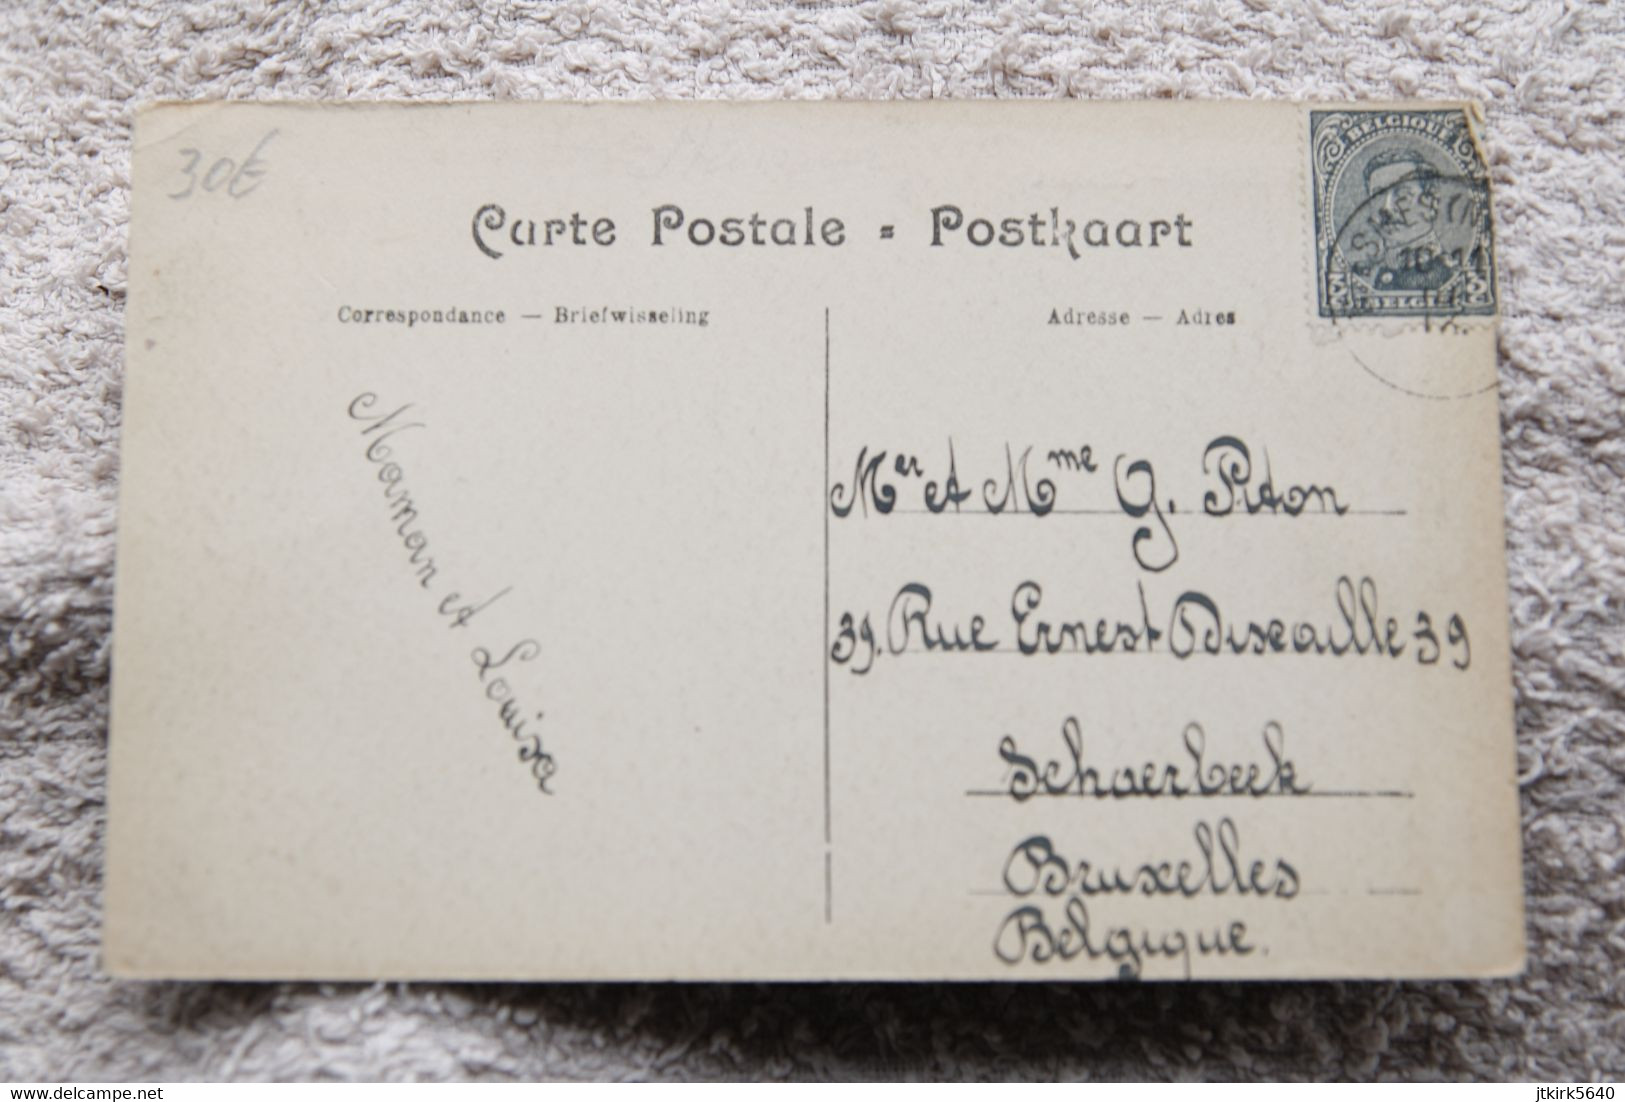 30€
Carte Postale = Postkaart
Correspondance — Briefwisseling
Adresse — Adres
BELGIQUE
BELGIË
Maman et Louisa
Mer et Mme G. Piton
39. Rue Ernest Discaille 39
Schaerbeek
Bruxelles
Belgique.
delcampe.net
jtkirk5640